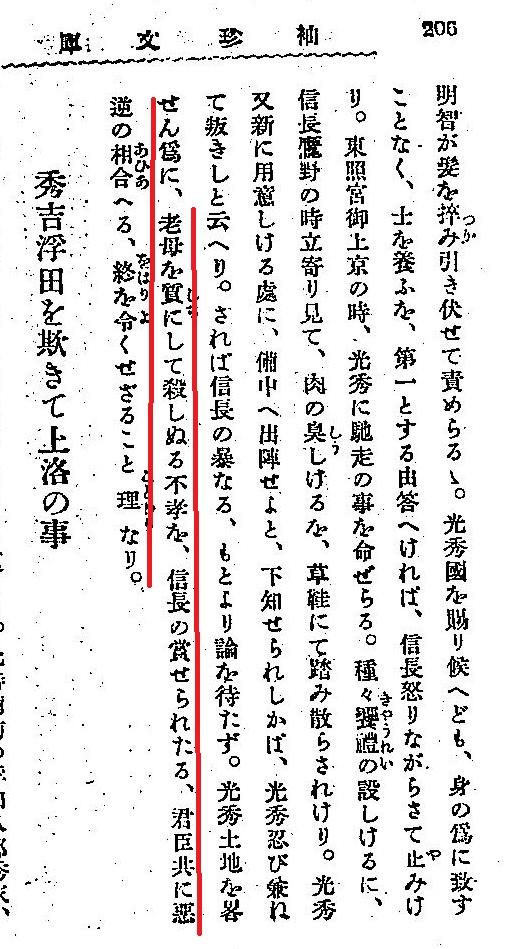 206
袖珍文庫
明智が髮を捽み引き伏せて責めらるゝ。光秀國を賜り候へども、身の爲に致す
ことなく、士を養ふを、第一とする由答へければ、信長怒りながらさて止みけ
り。東照宮御上京の時、光秀に馳走の事を命ぜらる。種々饗禮の設しけるに、
信長鷹野の時立寄り見て、肉の臭しけるを、草鞋にて踏み散らされけり。光秀
又新に用意しける處に、備中へ出陣せよと、下知せられしかば、光秀忍び兼ね
て叛きしと云へり。されば信長の暴なる、もとより論を待たず。光秀土地を畧
せん爲に、老母を質にして殺しぬる不孝を、信長の賞せられたる、君臣共に惡
逆の相合へる、終を令くせざること理なり。
秀吉浮田を欺きて上洛の事